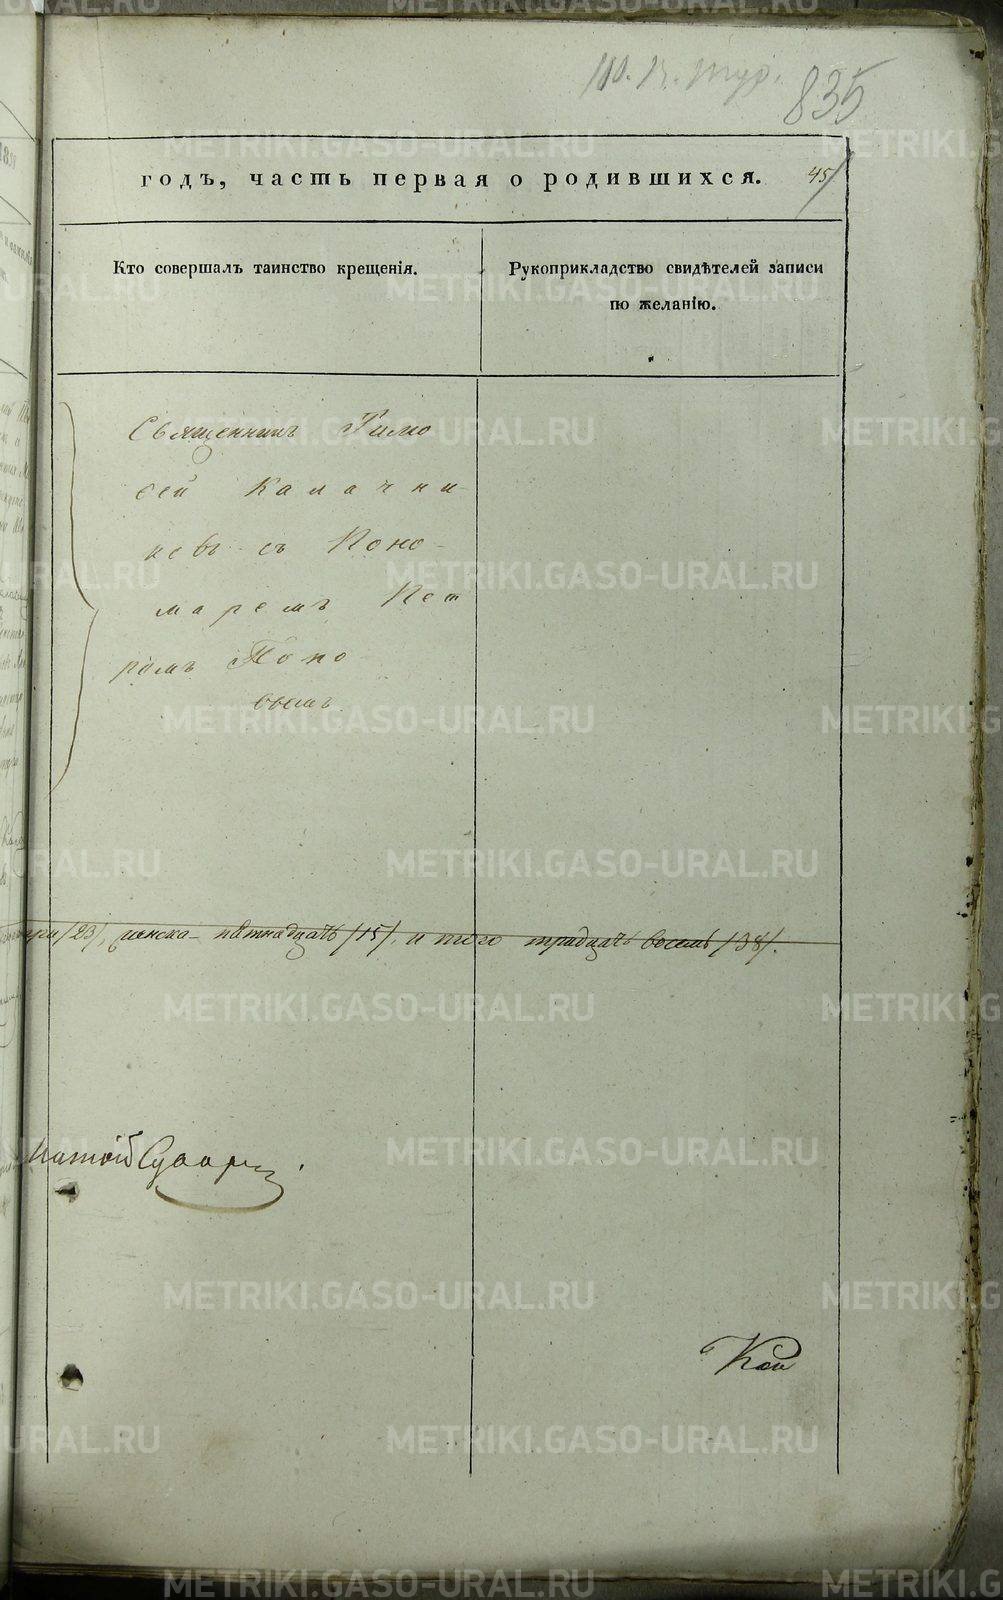 835
годъ, часть первая о родившихся. 45
Кто совершалъ таинство крещенія.
Рукоприкладство свидѣтелей записи
по желанію.
Священникъ Тимо
фей Калачни
ковъ съ Поно-
маремъ Пет
ромъ Попо
вымъ
три /23/, женска пятнадцать /15/, и того тридцать восемь /38/.
Кой
METRIKI.GASO-URAL.RU